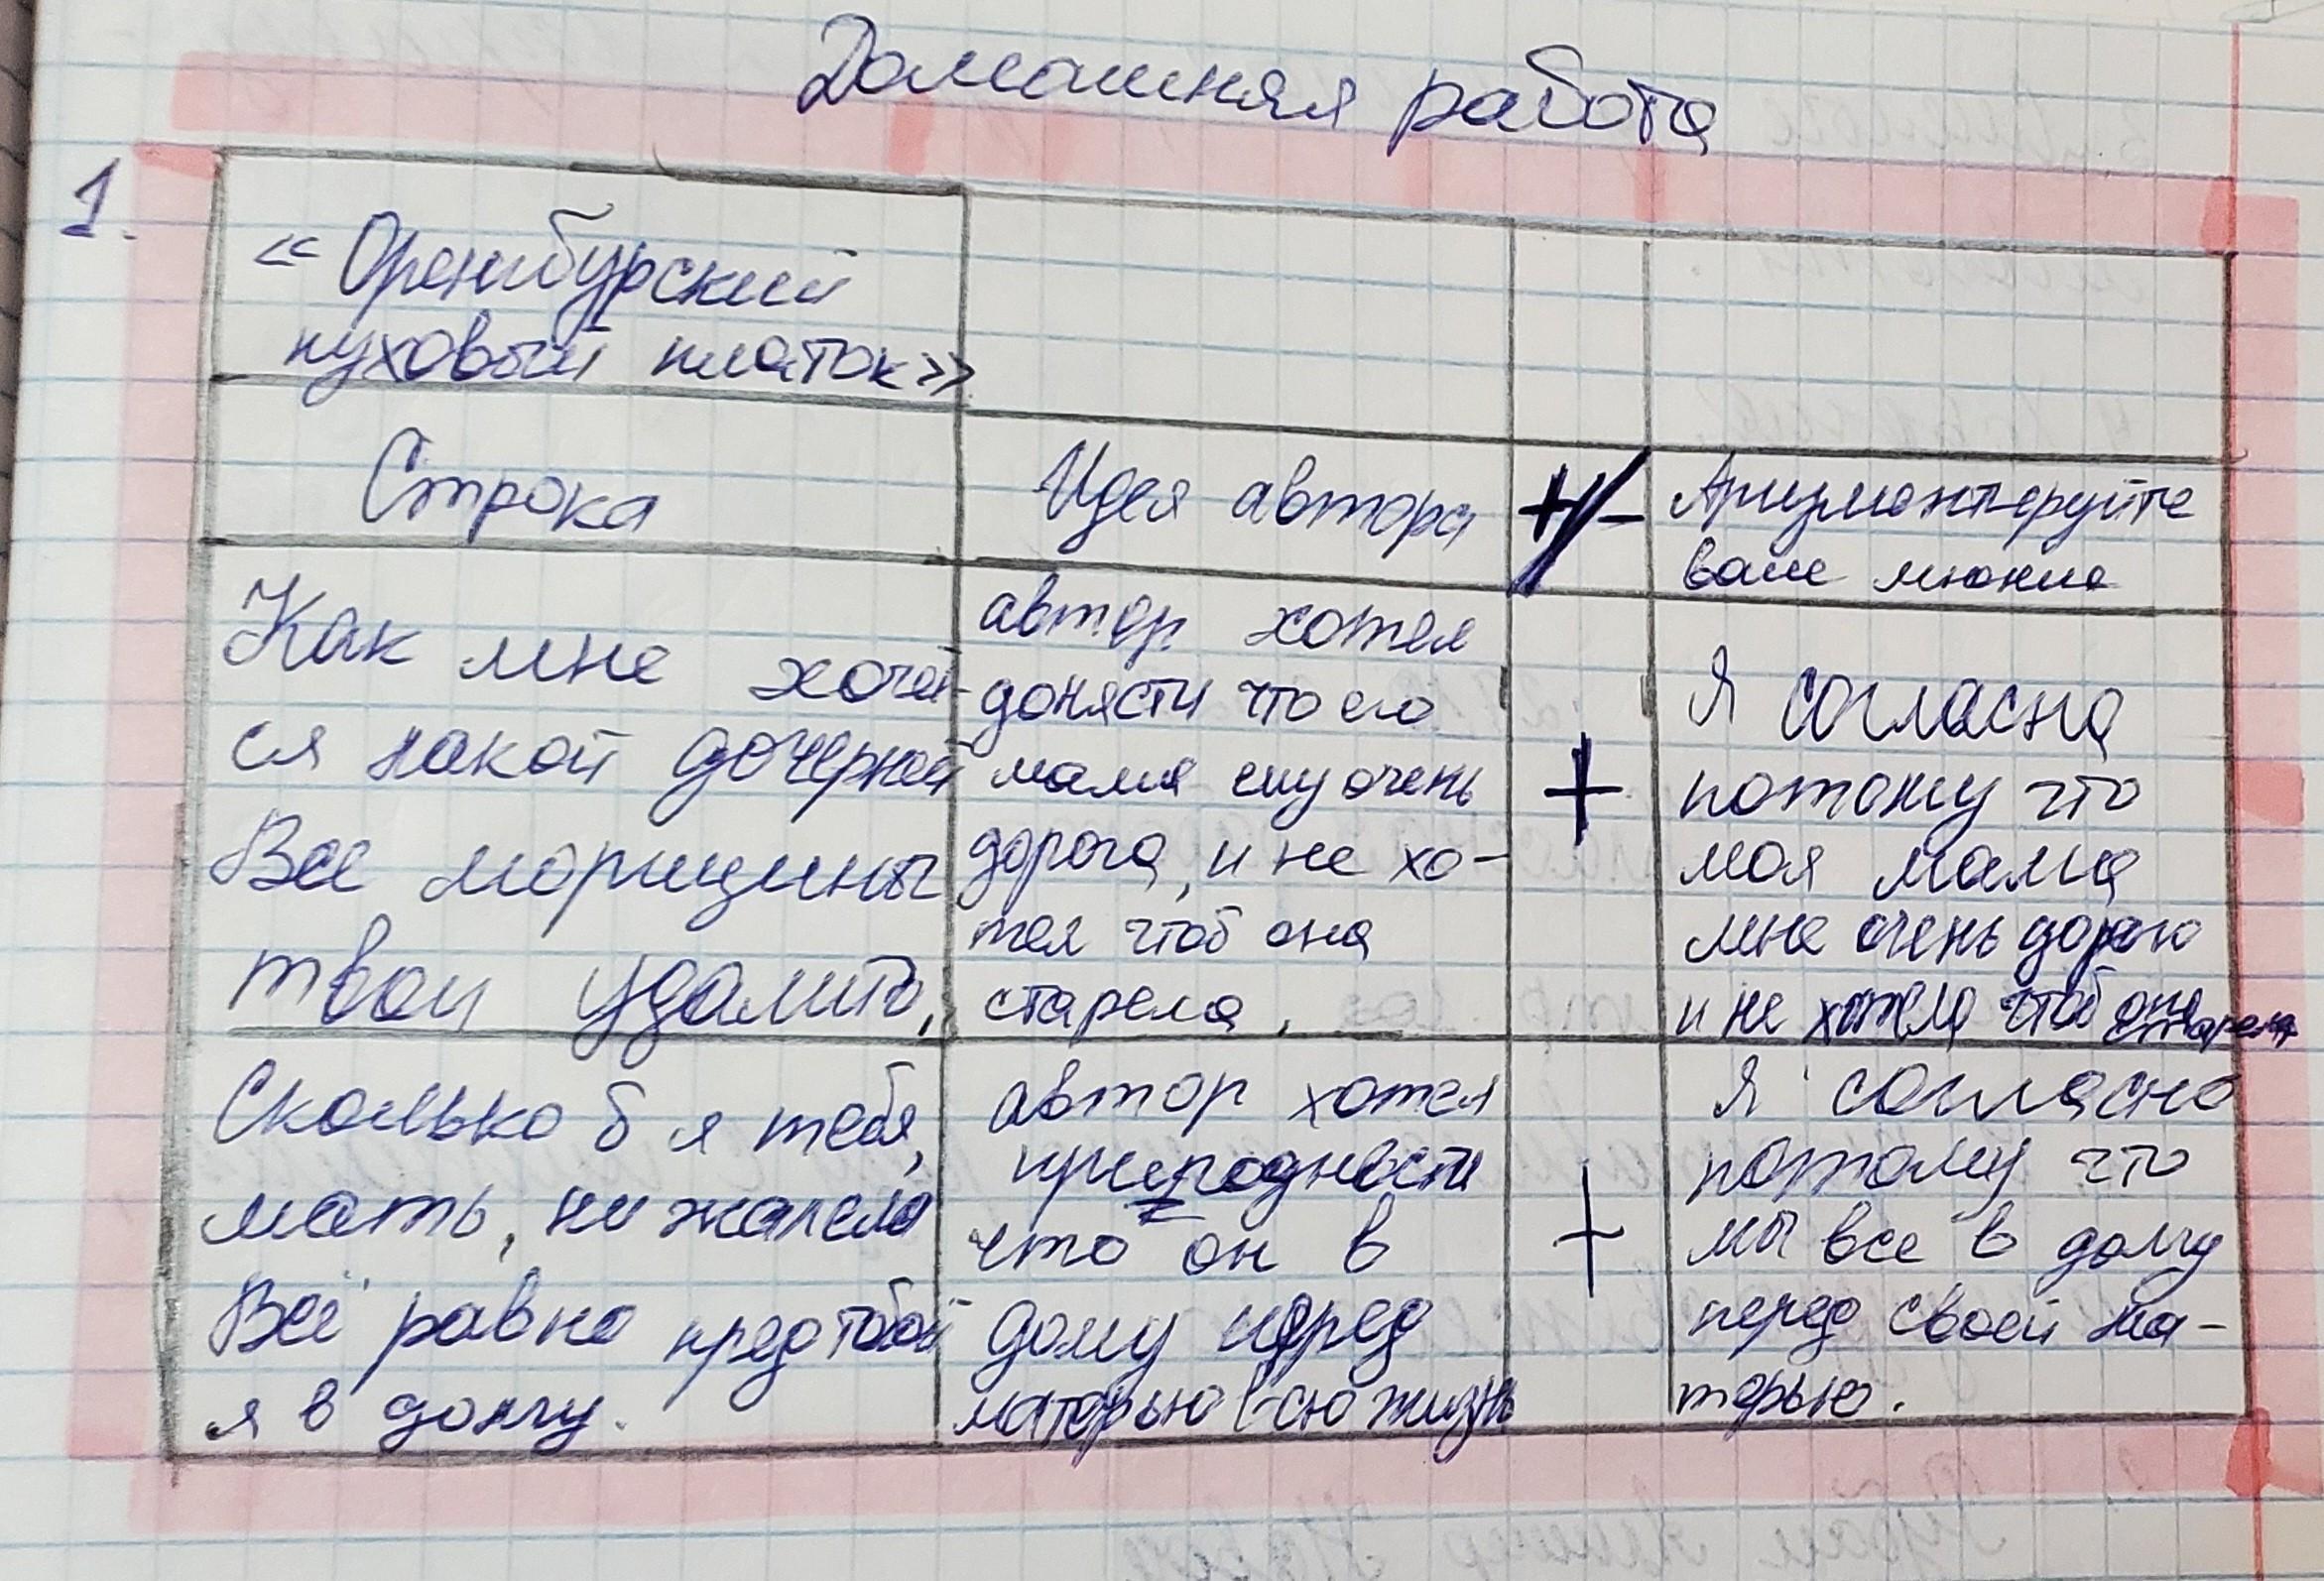 Домашняя работа
1.
« Оренбурский
пуховый платок»
Строка
Идея автора
+/-
Аргументируйте
ваше мнение
Как мне хочет-
ся накой дочерней
Все морщины
твои удалить,
автор хотел
донясти что его
мама ему очень
дорога, и не хо-
тел чтоб она
старела.
+
Я согласна
потому что
моя мама
мне очень дорого
и не хотела чтоб она старела
Сколько б я тебя,
мать, ни жалела
Всё равно пред тобой
я в долгу.
автор хотел
что он в
дому перед
матерью всю жизнь
+
Я согласна
потому что
мы все в долгу
перед своей ма-
терью.